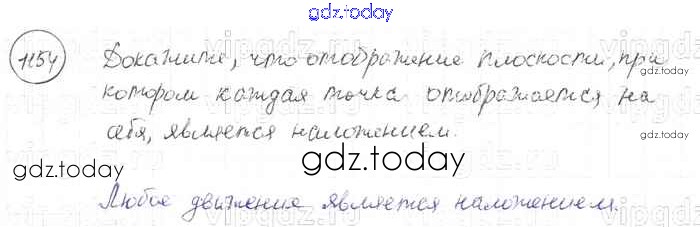 gdz.today
1154 Докажите, что отображение плоскости, при
gdz.today
котором каждая точка отображается на
себя, является наложением.
gdz.today
gdz.today
Любое движение является наложением.